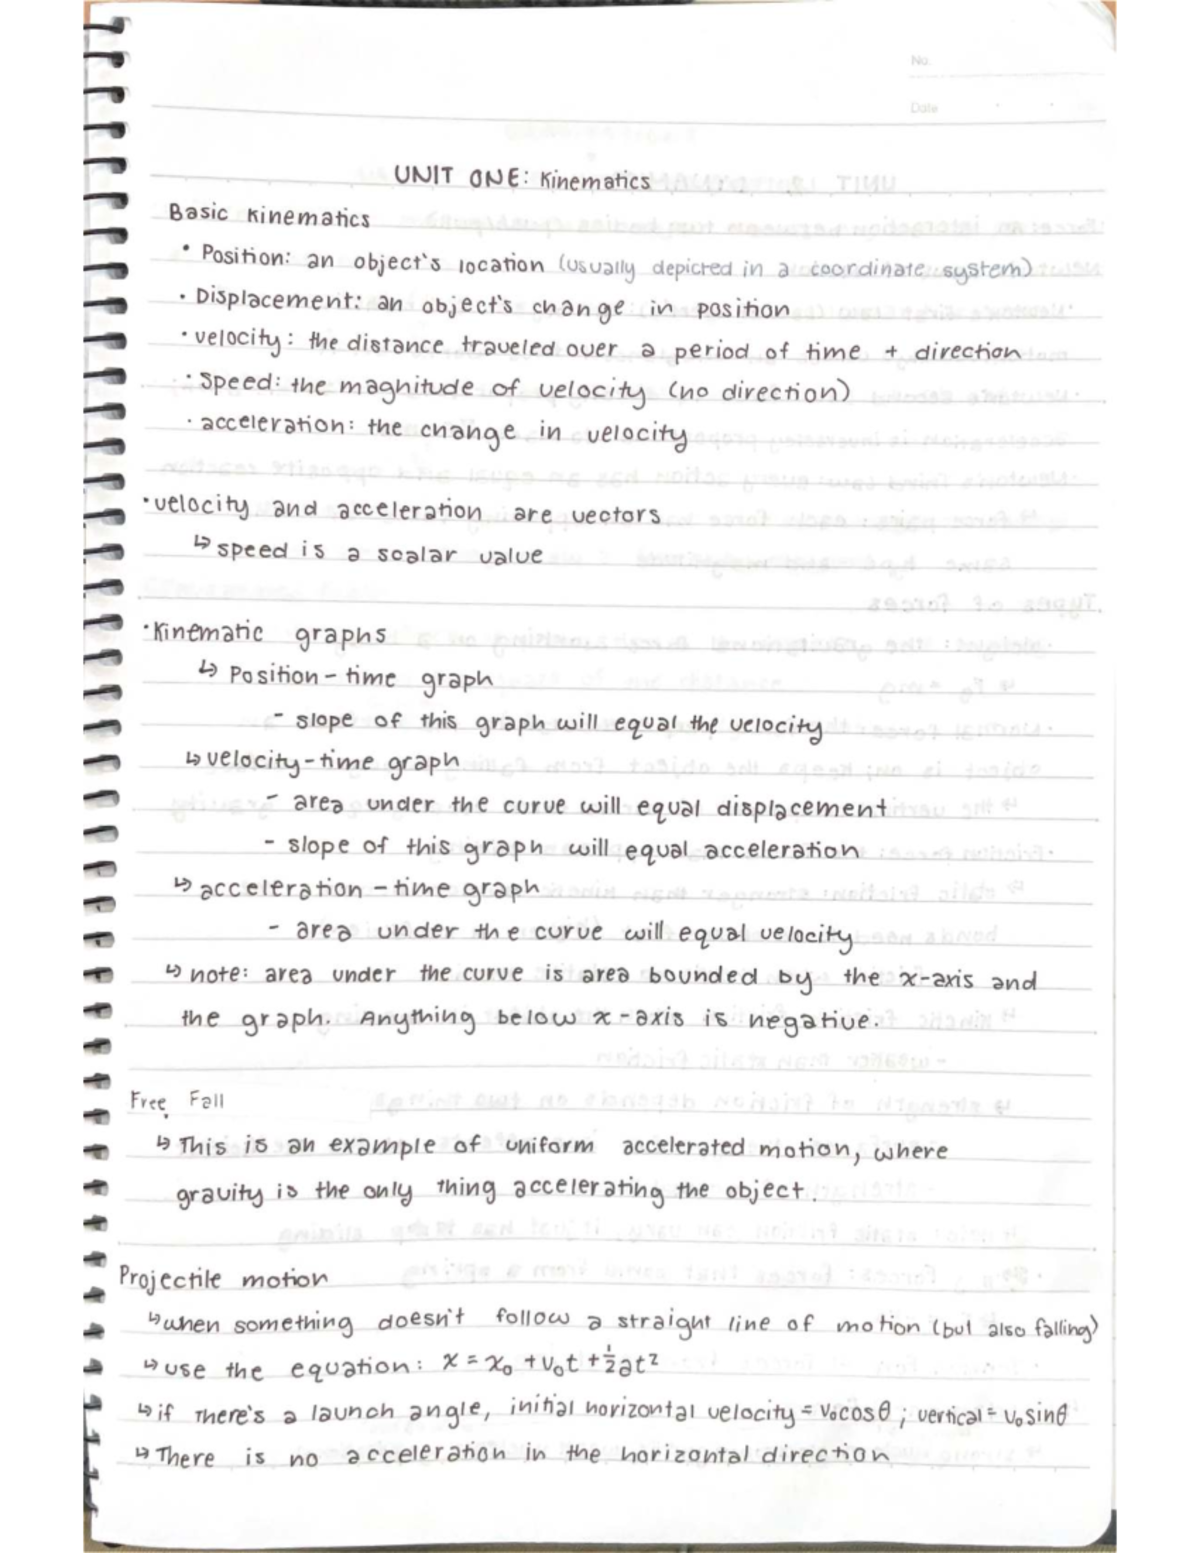 No.
Date
UNIT ONE: Kinematics
Basic Kinematics
• Position: an object's location (usually depicted in a coordinate system)
• Displacement: an object's change in position
• velocity: the distance traveled over a period of time + direction
• Speed: the magnitude of velocity (no direction)
• acceleration: the change in velocity
• velocity and acceleration are vectors
↳ speed is a scalar value
• Kinematic graphs
↳ Position-time graph
- slope of this graph will equal the velocity
↳ velocity-time graph
- area under the curve will equal displacement
- slope of this graph will equal acceleration
↳ acceleration-time graph
- area under the curve will equal velocity
↳ note: area under the curve is area bounded by the x-axis and
the graph. Anything below x-axis is negative.
Free Fall
↳ This is an example of uniform accelerated motion, where
gravity is the only thing accelerating the object.
Projectile motion
↳ when something doesn't follow a straight line of motion (but also falling)
↳ use the equation: x = x₀ + v₀t + ½at²
↳ if there's a launch angle, initial horizontal velocity = v₀cosθ ; vertical = v₀sinθ
↳ There is no acceleration in the horizontal direction